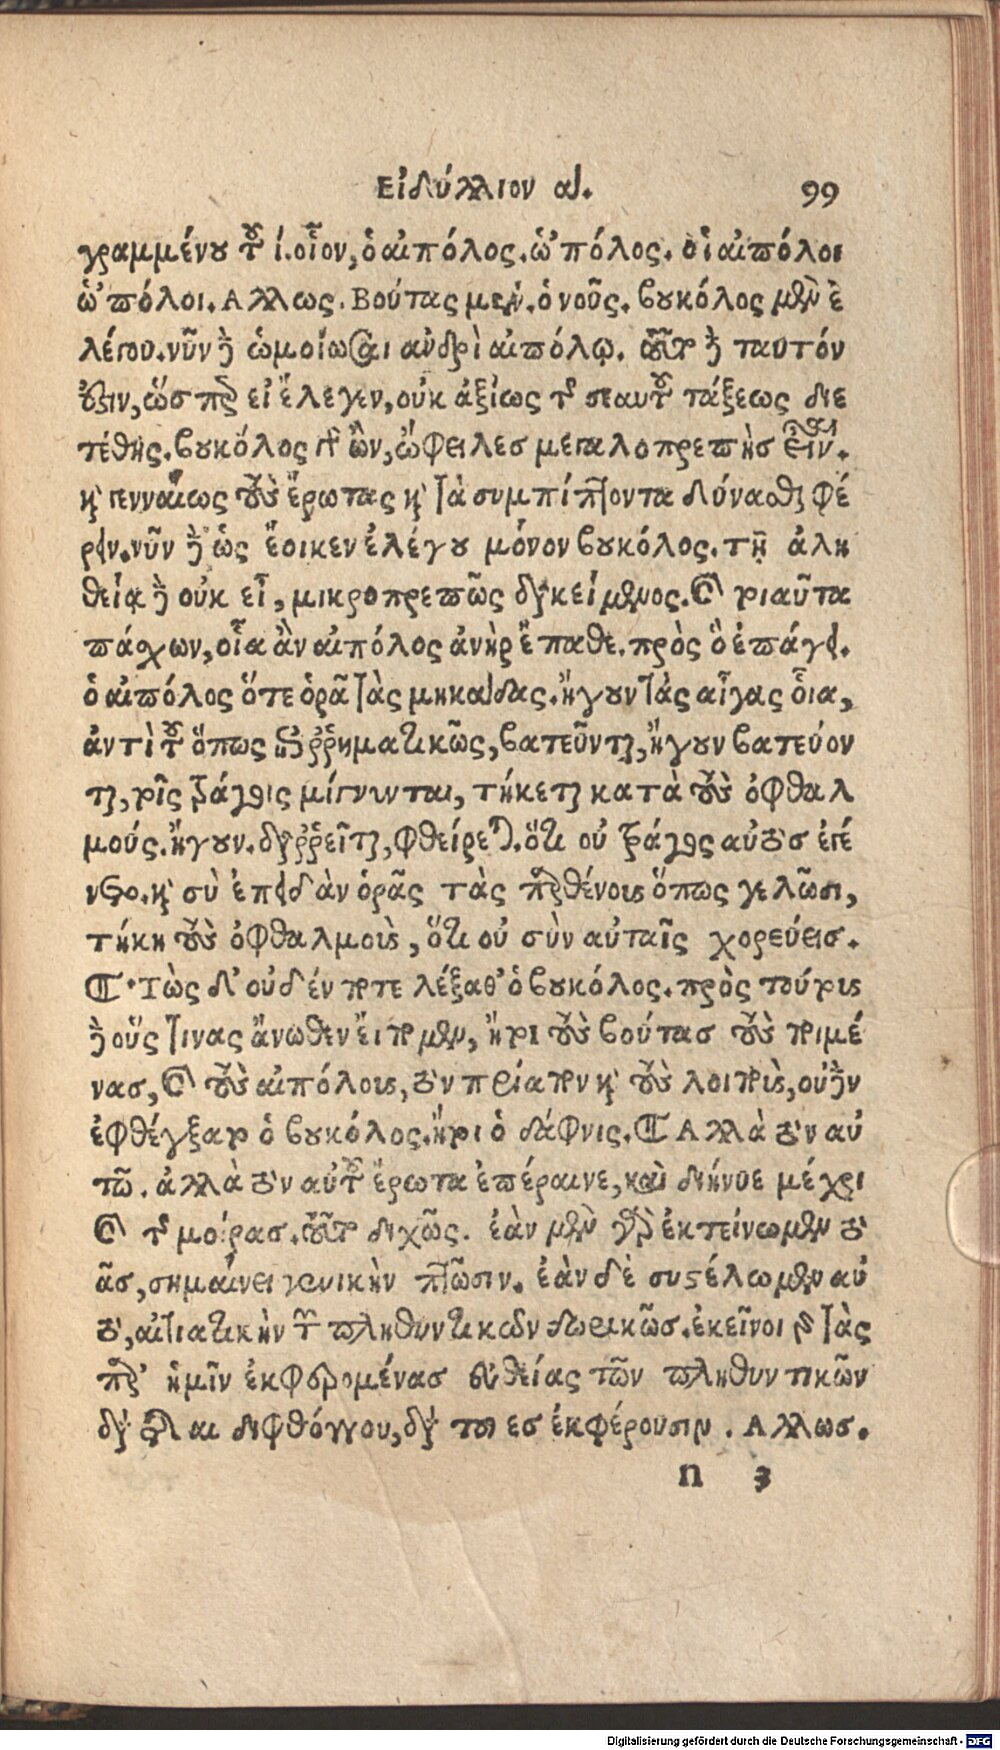 Εἰδύλλιον α. 99
γραμμένου τοῦ ι. οἷον, ὁ αἰπόλος. ὡ'πόλος. οἱ αἰπόλοι
ὡ'πόλοι. Αλλως. Βούτας μέν. ὁ νοῦς. βουκόλος μὲν ἐ
λέγου. νῦν δὲ ὡμοίωσαι ἀνδρὶ αἰπόλῳ. τοῦτο δὲ ταυτόν
ἐστιν, ὥσπερ εἰ ἔλεγεν, οὐκ ἀξίως τῆς σεαυτοῦ τάξεως διε
τέθης. βουκόλος γὰρ ὢν, ὤφειλες μεγαλοπρεπὴς εἶναι.
καὶ γενναίως τοὺς ἔρωτας καὶ τὰ συμπίπτοντα δύνασθαι φέ
ρειν. νῦν δὲ ὡς ἔοικεν ἐλέγου μόνον βουκόλος. τῇ ἀλη
θείᾳ δὲ οὐκ εἶ, μικροπρεπῶς διακείμενος. καὶ τοιαῦτα
πάσχων, οἷα ἂν αἰπόλος ἀνὴρ ἔπαθε. πρὸς ὃ ἐπάγει.
ὁ αἰπόλος ὅτε ὁρᾷ τὰς μηκάδας. ἤγουν τὰς αἶγας οἷα,
ἀντὶ τοῦ ὅπως ἐπιρρηματικῶς, βατεῦνται, ἤγουν βατεύον
ται, τοῖς τράγοις μίγνυνται, τήκεται κατὰ τοὺς ὀφθαλ
μούς. ἤγουν. διαρρεῖται, φθείρεται. ὅτι οὐ τράγος αὐτὸς ἐγέ
νετο. καὶ σὺ ἐπειδὰν ὁρᾷς τὰς παρθένους ὅπως γελῶσι,
τήκῃ τοὺς ὀφθαλμοὺς, ὅτι οὐ σὺν αὐταῖς χορεύεις.
¶ Τὼς δ' οὐδέν ποτε λέξαθ' ὁ βουκόλος. πρὸς τούτους
δὲ οὕς τινας ἄνωθεν εἴπομεν, ἤτοι τοὺς βούτας τοὺς ποιμέ
νας, καὶ τοὺς αἰπόλους, τὸν πρίαπον καὶ τοὺς λοιποὺς, οὐδὲν
ἐφθέγξατο ὁ βουκόλος. ἤτοι ὁ δάφνις. ¶ Αλλὰ τὸν αὑ
τῶ. ἀλλὰ τὸν αὑτοῦ ἔρωτα ἐπέραινε, καὶ διήνυε μέχρι
καὶ τῆς μοίρας. τοῦτο διχῶς. ἐὰν μὲν γὰρ ἐκτείνωμεν τὸ
ᾶς, σημαίνει γενικὴν πτῶσιν. ἐὰν δὲ συστέλωμεν αὐ
τὸ, αἰτιατικὴν τῶν πληθυντικῶν δωρικῶς. ἐκεῖνοι γὰρ τὰς
παρ' ἡμῖν ἐκφερομένας εὐθείας τῶν πληθυντικῶν
διὰ τῆς αι διφθόγγου, διὰ τοῦ ες ἐκφέρουσιν. Αλλως.
n 3
Digitalisierung gefördert durch die Deutsche Forschungsgemeinschaft - DFG